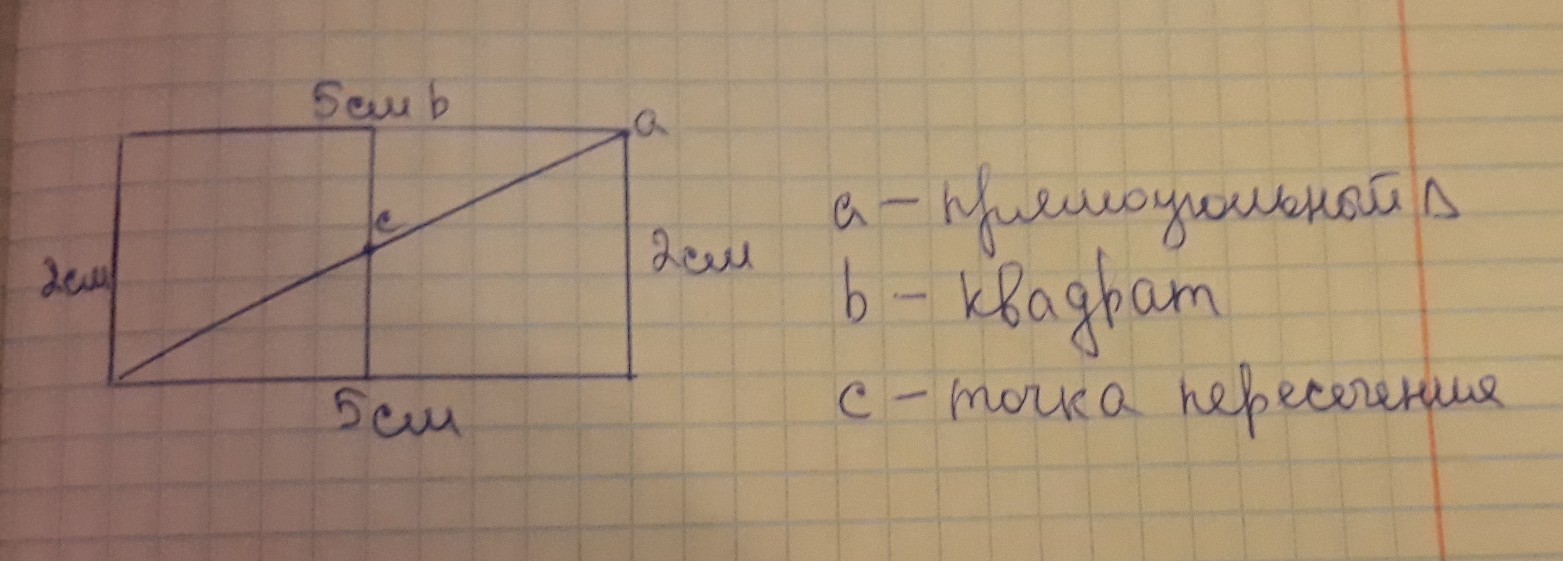 5см b
a
c
2см
2см
5см
a – прямоугольной Δ
b – квадрат
c – точка пересечения